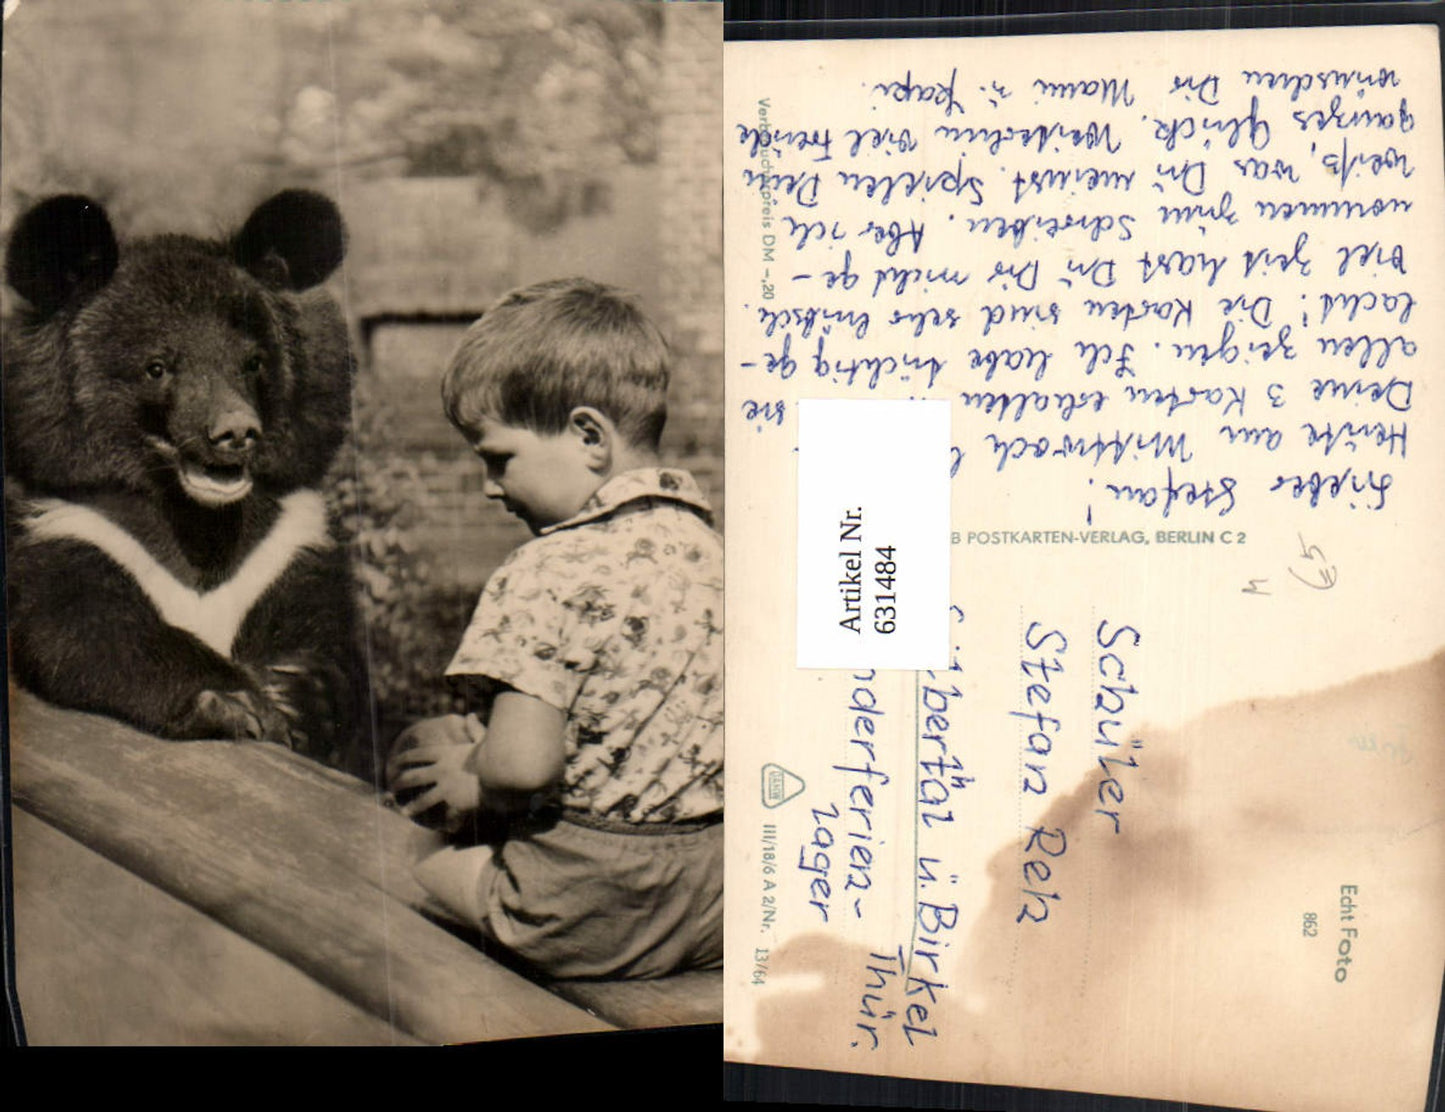 Lieber Stefan!
Heute am Mittwoch
Deine 3 Karten erhalten sie
allen zeigen. Ich habe tüchtig ge-
lacht! Die Karten sind sehr hübsch.
Viel Zeit hast Du Dir nicht ge-
nommen zum Schreiben. Aber ich
weiß, was Du meinst. Spielen Dein
ganzes Glück. Weiterhin viel Freude
wünschen Dir Mami u. Papi.
B POSTKARTEN-VERLAG, BERLIN C 2
M
65
Schüler
Stefan Reh
lberth
ü. Birkel
nderferien-
Thür.
lager
Artikel Nr.
631484
Verbraucherpreis DM -,20
III/18/6 A 2/Nr. 13/64
Echt Foto
862